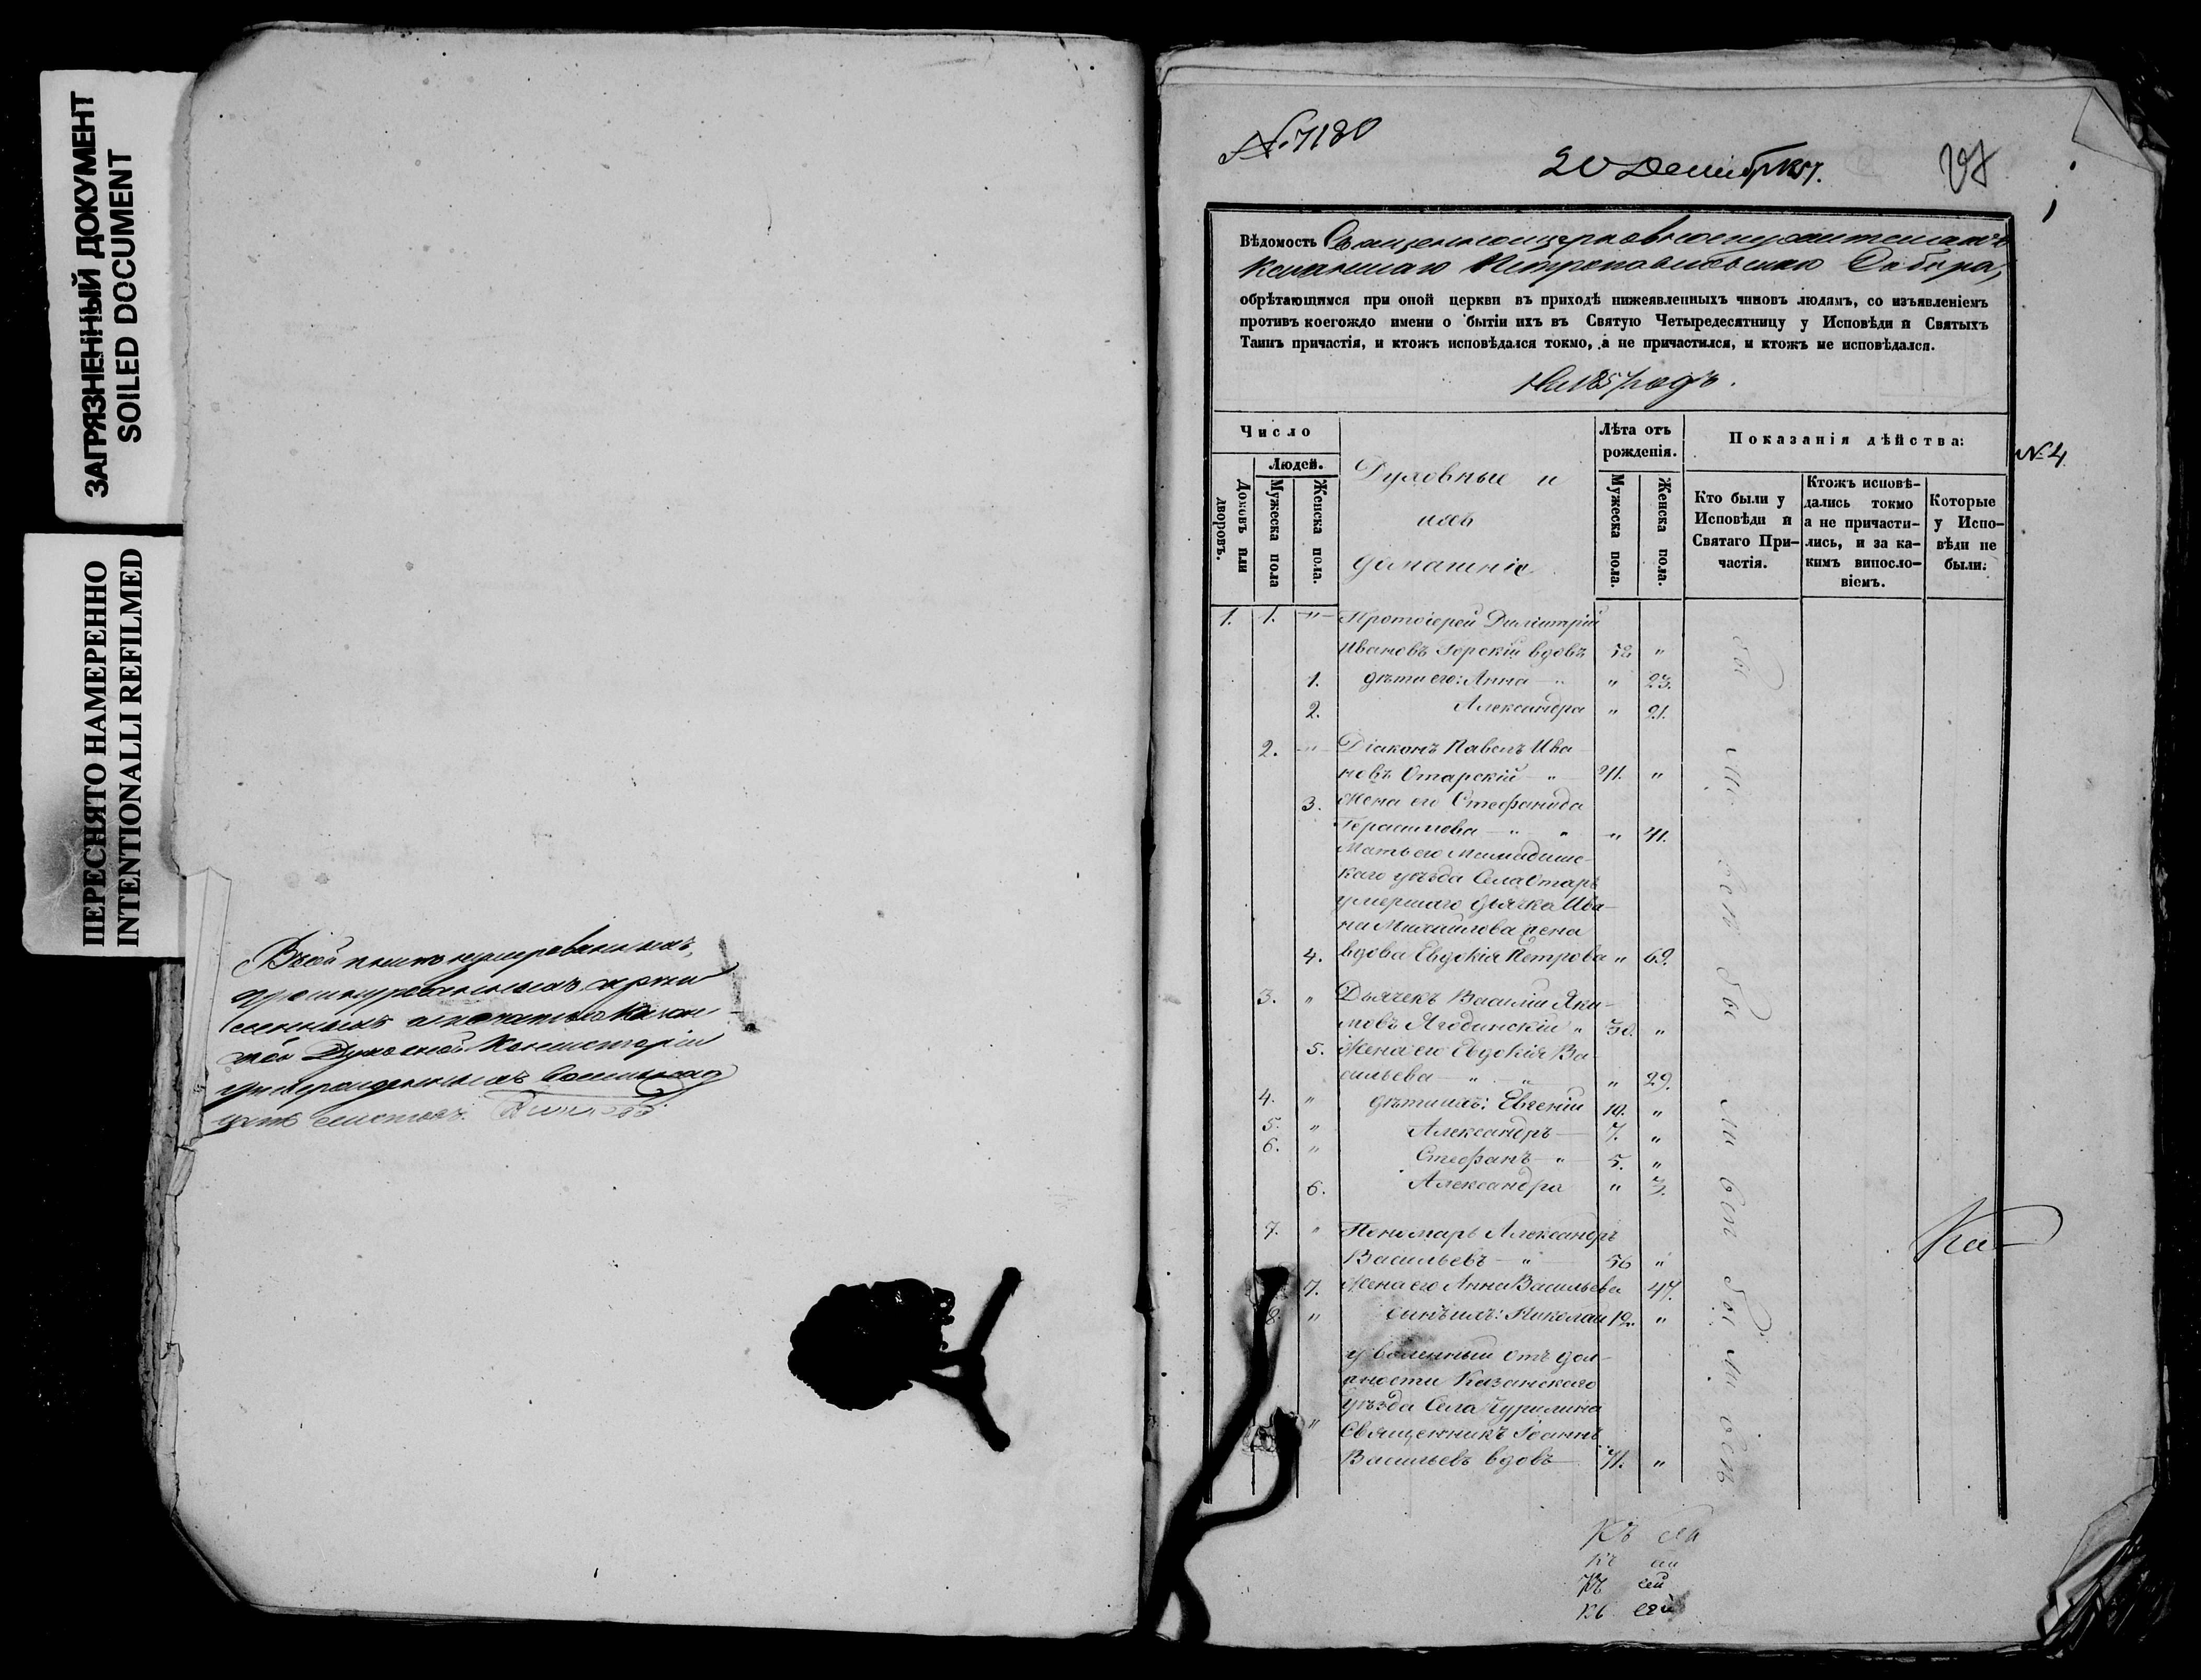 ЗАГРЯЗНЕННЫЙ ДОКУМЕНТ
SOILED DOCUMENT
ПЕРЕСНЯТО НАМЕРЕННО
INTENTIONALLI REFILMED
Духовной Консисторіи
листовъ.
№ 7180
20 Декабр
Вѣдомость Священноцерковнослужителей
Петропавловскаго Собора,
обрѣтающимся при оной церкви въ приходѣ нижеявленныхъ чиновъ людямъ, со изъявленіемъ
противъ коегождо имени о бытіи ихъ въ Святую Четыредесятницу у Исповѣди и Святыхъ
Таинъ причастія, и ктожъ исповѣдался токмо, а не причастился, и ктожъ не исповѣдался.
На 1857 годъ.
Число
Людей.
Домовъ или дворовъ.
Мужеска пола
Женска пола.
Духовные и
ихъ
домашніе
Лѣта отъ
рожденія.
Мужеска пола.
Женска пола.
Показанія дѣйства:
№ 4
Кто были у
Исповѣди и
Святаго При-
частія.
Ктожъ исповѣ-
дались токмо
а не причасти-
лись, и за ка-
кимъ винosло-
віемъ.
Которые
у Испо-
вѣди не
были.
1. 1. " Протоіерей Димитрій
Ивановъ Горскій вдовъ 52 "
1. дѣти его: Анна " " 23.
2. Александра " 21.
2. " Діаконъ Павелъ Ива-
новъ Отарскій " 41. "
3. Жена его Стефанида
Герасимова " " " 41.
Мать его Мамадыш-
скаго уѣзда Села Отаръ
умершаго дьячка Ива-
на Михайлова жена
4. вдова Евдокія Петрова " 69.
3. " Дьячекъ Василій Яки-
мовъ Ягодинскій " 30. "
5. Жена его Евдокія Ва-
сильева " " " 29.
4. " дѣти ихъ: Евгеній 10. "
5. " Александръ 7. "
6. " Стефанъ " 5. "
6. Александра " 3.
7. " Пономарь Александръ
Васильевъ " 56 "
7. Жена его Анна Васильева 47.
8. " сынъ ихъ: Николай 12. "
уволенный отъ дол-
жности Казанскаго
уѣзда Села Чурилина
" Священникъ Іоаннъ
Васильевъ вдовъ 71. "
Ка
Къ сей
Къ сей
Къ сей